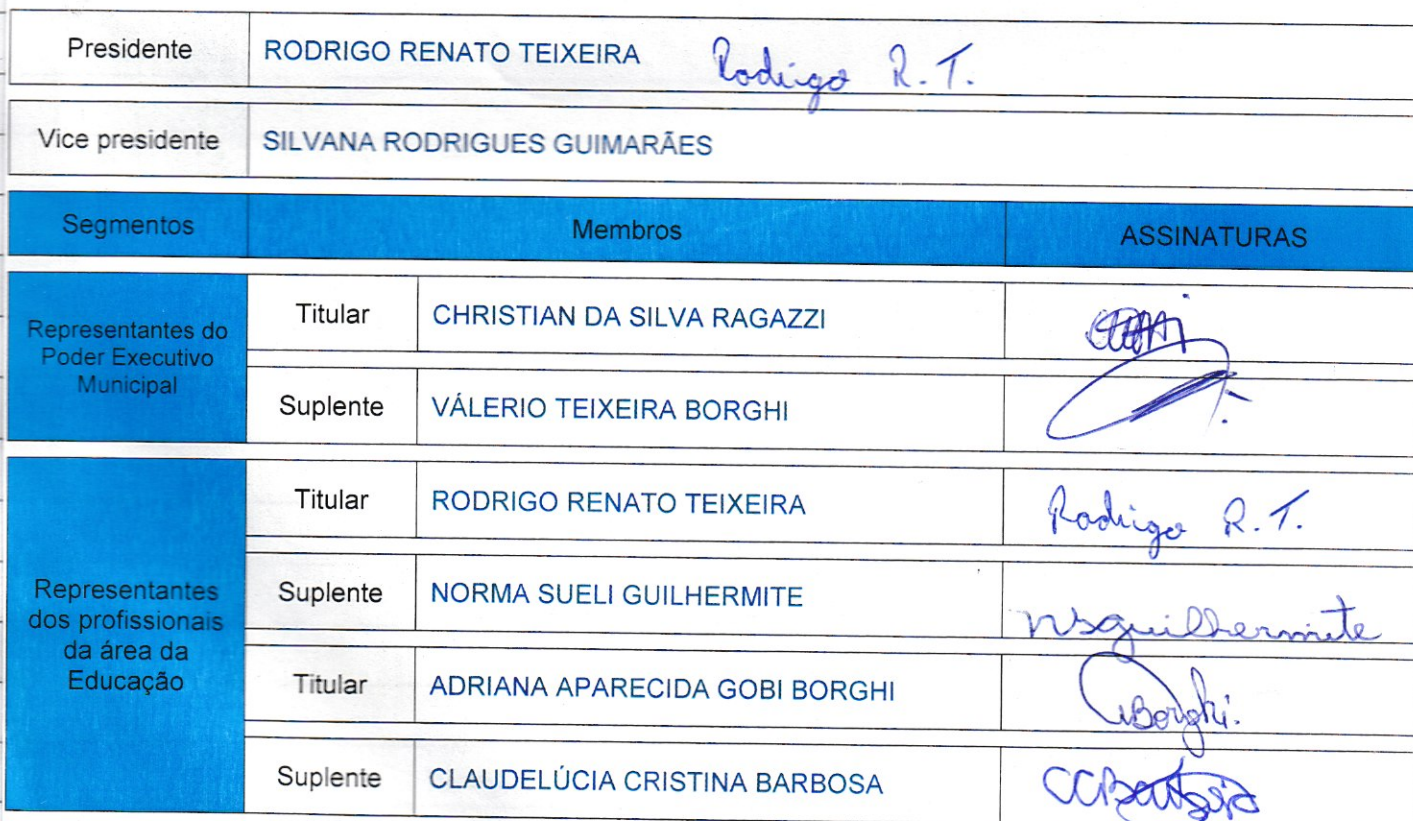 Presidente RODRIGO RENATO TEIXEIRA Rodrigo R. T.
Vice presidente SILVANA RODRIGUES GUIMARÃES
Segmentos Membros ASSINATURAS
Representantes do
Poder Executivo
Municipal
Titular CHRISTIAN DA SILVA RAGAZZI
Suplente VÁLERIO TEIXEIRA BORGHI
Representantes
dos profissionais
da área da
Educação
Titular RODRIGO RENATO TEIXEIRA Rodrigo R. T.
Suplente NORMA SUELI GUILHERMITE nsguilhermite
Titular ADRIANA APARECIDA GOBI BORGHI ABorghi.
Suplente CLAUDELÚCIA CRISTINA BARBOSA CCBarbosa